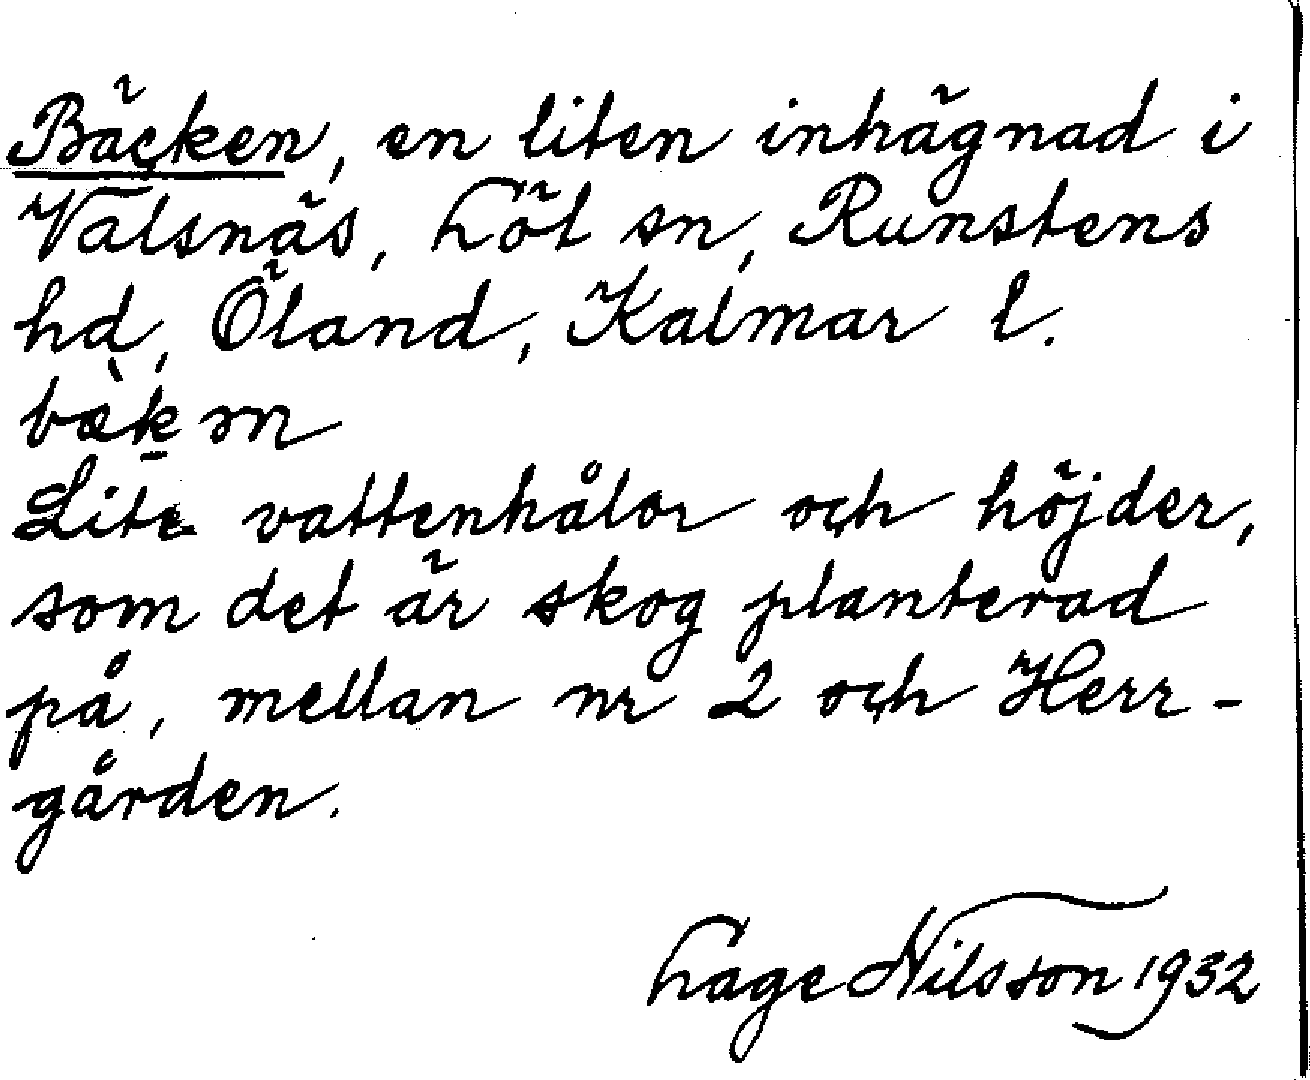 Bäcken, en liten inhägnad i
Valsnäs, Löt sn, Runstens
hd, Öland, Kalmar l.
Lite vattenhålor och höjder,
som det är skog planterad
på, mellan nr 2 och Herr-
gården.
Lage Nilsson 1932